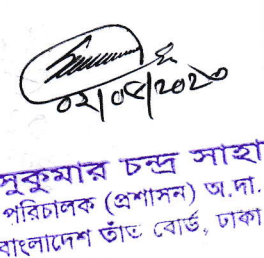 ০২/০৫/২০২০
সুকুমার চন্দ্র সাহা
পরিচালক (প্রশাসন) অ.দা.
বাংলাদেশ তাঁত বোর্ড, ঢাকা